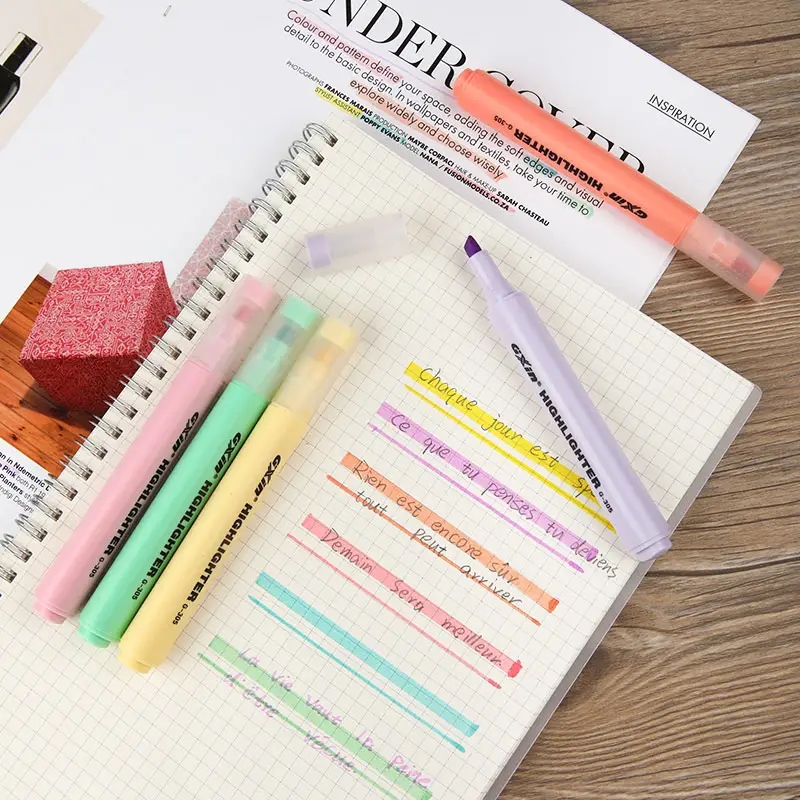 UNDER COVER
INSPIRATION
Colour and pattern define your space, adding the soft edges and visual
detail to the basic design. In wallpapers and textiles, take your time to
explore widely and choose wisely
PHOTOGRAPHS FRANCES MARAIS PRODUCTION MAYBE CORPACI HAIR & MAKE UP SARAH CHASTEAU
STYLIST ASSISTANT POPPY EVANS MODEL NANA / FUSIONMODELS.CO.ZA
GXin HIGHLIGHTER G-305
GXin HIGHLIGHTER G-305
GXin HIGHLIGHTER G-305
GXin HIGHLIGHTER G-305
GXin HIGHLIGHTER G-305
Chaque jour est sy-
Ce que tu penses tu deviens
Rien est encore sûr
tout peut arriver
Demain sera meilleur
La vie vaut la peine
d'être vécue